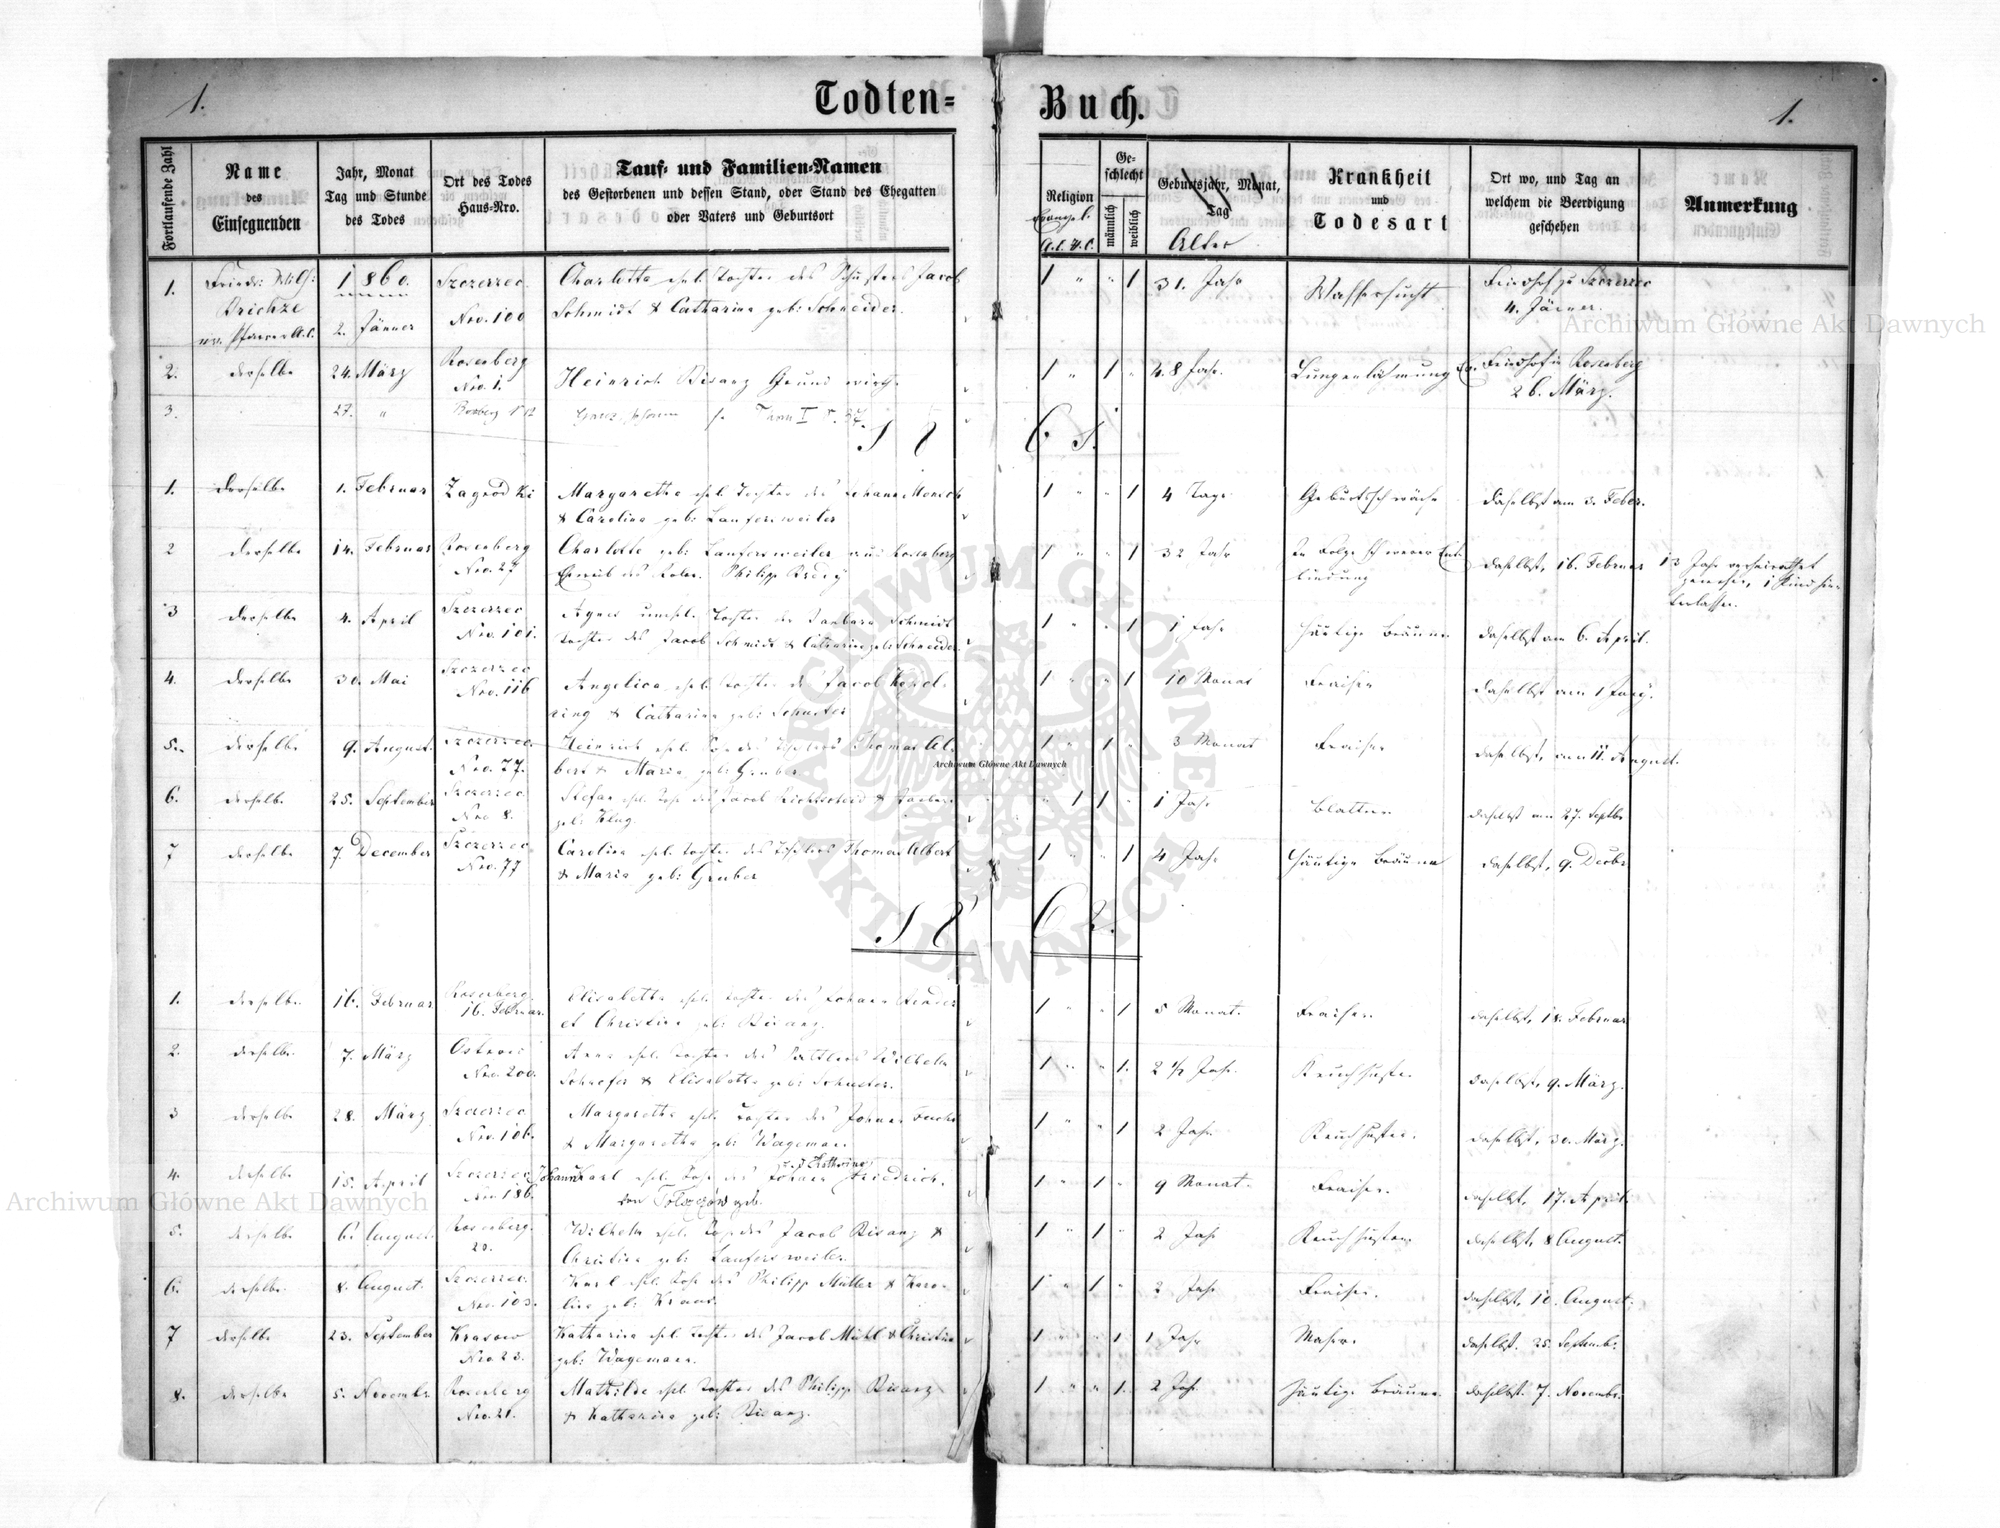 1.
Todten=
Buch.
1.
Fortlaufende Zahl
Name
des
Einsegnenden
Jahr, Monat
Tag und Stunde
des Todes
Ort des Todes
Haus-Nro.
Tauf- und Familien-Namen
des Gestorbenen und dessen Stand, oder Stand des Ehegatten
oder Vaters und Geburtsort
Religion
Evangel.
A.C. H.C.
Ge-
schlecht
männlich
weiblich
Geburtsjahr, Monat,
Tag
Alter
Krankheit
und
Todesart
Ort wo, und Tag an
welchem die Beerdigung
geschehen
Anmerkung
1. Friedr: Wilh: 1860. Szczerzec. Charlotta ehel. Tochter des Schusters Jacob 1 " " 1 31. Jahr Wassersucht Friedhof zu Szczerzec
Brichze 2. Jänner Nro. 100 Schmidt & Catharina geb: Schneider. 4. Jänner.
Pfarrer A.C.
2. derselbe 24. März Rosenberg Heinrich Bisanz Grundwirth. 1 " 1 " 48 Jahr. Lungenlähmung Friedhof in Rosenberg
Nro. 1. 26. März.
3. 27. "
1 8 6 1.
1. derselbe 1. Februar Zagrodki Margaretha ehel. Tochter des Johann Monich 1 " " 1 4 Tage Geburtsschwäche daselbst am 3. Feber.
& Carolina geb: Laufersweiler
2 derselbe 14. Februar Rosenberg Charlotte geb: Laufersweiler aus Rosenberg 1 " " 1 32 Jahr In Folge schwerer Ent- daselbst, 16. Februar 13 Jahr verheirathet
Nro. 27 Eheweib des Philipp bindung gewesen, 1 Kind hin-
terlassen.
3 derselbe 4. April Szczerzec Agnes unehl. Tochter der Barbara Schmidt 1 " " 1 1 Jahr häutige Bräune daselbst am 6. April.
Nro. 101. Tochter des Jacob Schmidt & Catharina geb: Schneider.
4. derselbe 30. Mai Szczerzec Angelica ehel. Tochter des Jacob 1 " " 1 10 Monat Fraisen daselbst am 1 Juny.
Nro. 116 & Catharina geb: Schuster
5. derselbe 9. August. Szczerzec. Heinrich ehel. Sohn des Thomas Al- 1 " 1 " 3 Monat Fraisen daselbst, am 11. August.
Nro. 77. bert & Maria geb: Gruber
6. derselbe 25. September Szczerzec Stefan ehel. Sohn des Jacob " 1 1 " 1 Jahr Blattern daselbst am 27. Septbr
Nro 8. geb: Klug.
7 derselbe 7. December Szczerzec Carolina ehel. Tochter des Thomas Albert 1 " " 1 4 Jahr häutige Bräune daselbst, 9. Decbr
Nro. 77 & Maria geb: Gruber
1 8 6 2.
1. derselbe 16. Februar Rosenberg. Elisabetha ehel. Tochter des Johann 1 " " 1 5 Monat. Fraisen. daselbst, 18. Februar
16. Februar. et Christina geb: Bisanz.
2. derselbe 7. März Ostrow Anna ehel. Tochter des Sattlers Wilhelm 1 " " 1. 2 1/2 Jahr. Keuchhusten. daselbst, 9. März.
Nro. 200. Schaefer & Elisabetha geb: Schuster.
3 derselbe 28. März Szczerzec Margaretha ehel. Tochter des Johann Fuchs 1 " " 1. 2 Jahr. Keuchhusten. daselbst, 30. März.
Nro. 106. & Margaretha geb: Wagemann
4. derselbe 15. April Szczerzec Johann Karl ehel. Sohn des Johann Friedrich. 1 " 1 " 9 Monat. Fraisen. daselbst, 17. April.
Nro 186.
5. derselbe 6. August. Rosenberg. Wilhelm ehel. Sohn des Jacob Bisanz & 1 " 1 " 2 Jahr Keuchhusten daselbst, 8 August.
20. Christina geb: Laufersweiler.
6. derselbe. 8. August. Szczerzec. Karl ehel. Sohn des Philipp Müller & Karo- 1 " 1 " 2 Jahr Fraisen. daselbst, 10. August.
Nro. 103. lina geb: Kraus.
7 derselbe 23. September Krasow Katharina ehel. Tochter des Jacob Mühl & Christina 1 " " 1 1 Jahr Masern. daselbst. 25. Septemb.
Nro 23. geb: Wagemann.
8. derselbe 5. Novembr. Rosenberg Mathilde ehel. Tochter des Philipp Bisanz 1 " " 1. 2 Jahr häutige Bräune daselbst. 7. Novembr.
Nro. 21. & Katharina geb: Bisanz.
Archiwum Główne Akt Dawnych
Archiwum Główne Akt Dawnych
Archiwum Główne Akt Dawnych
ARCHIWUM GŁÓWNE
AKT DAWNYCH